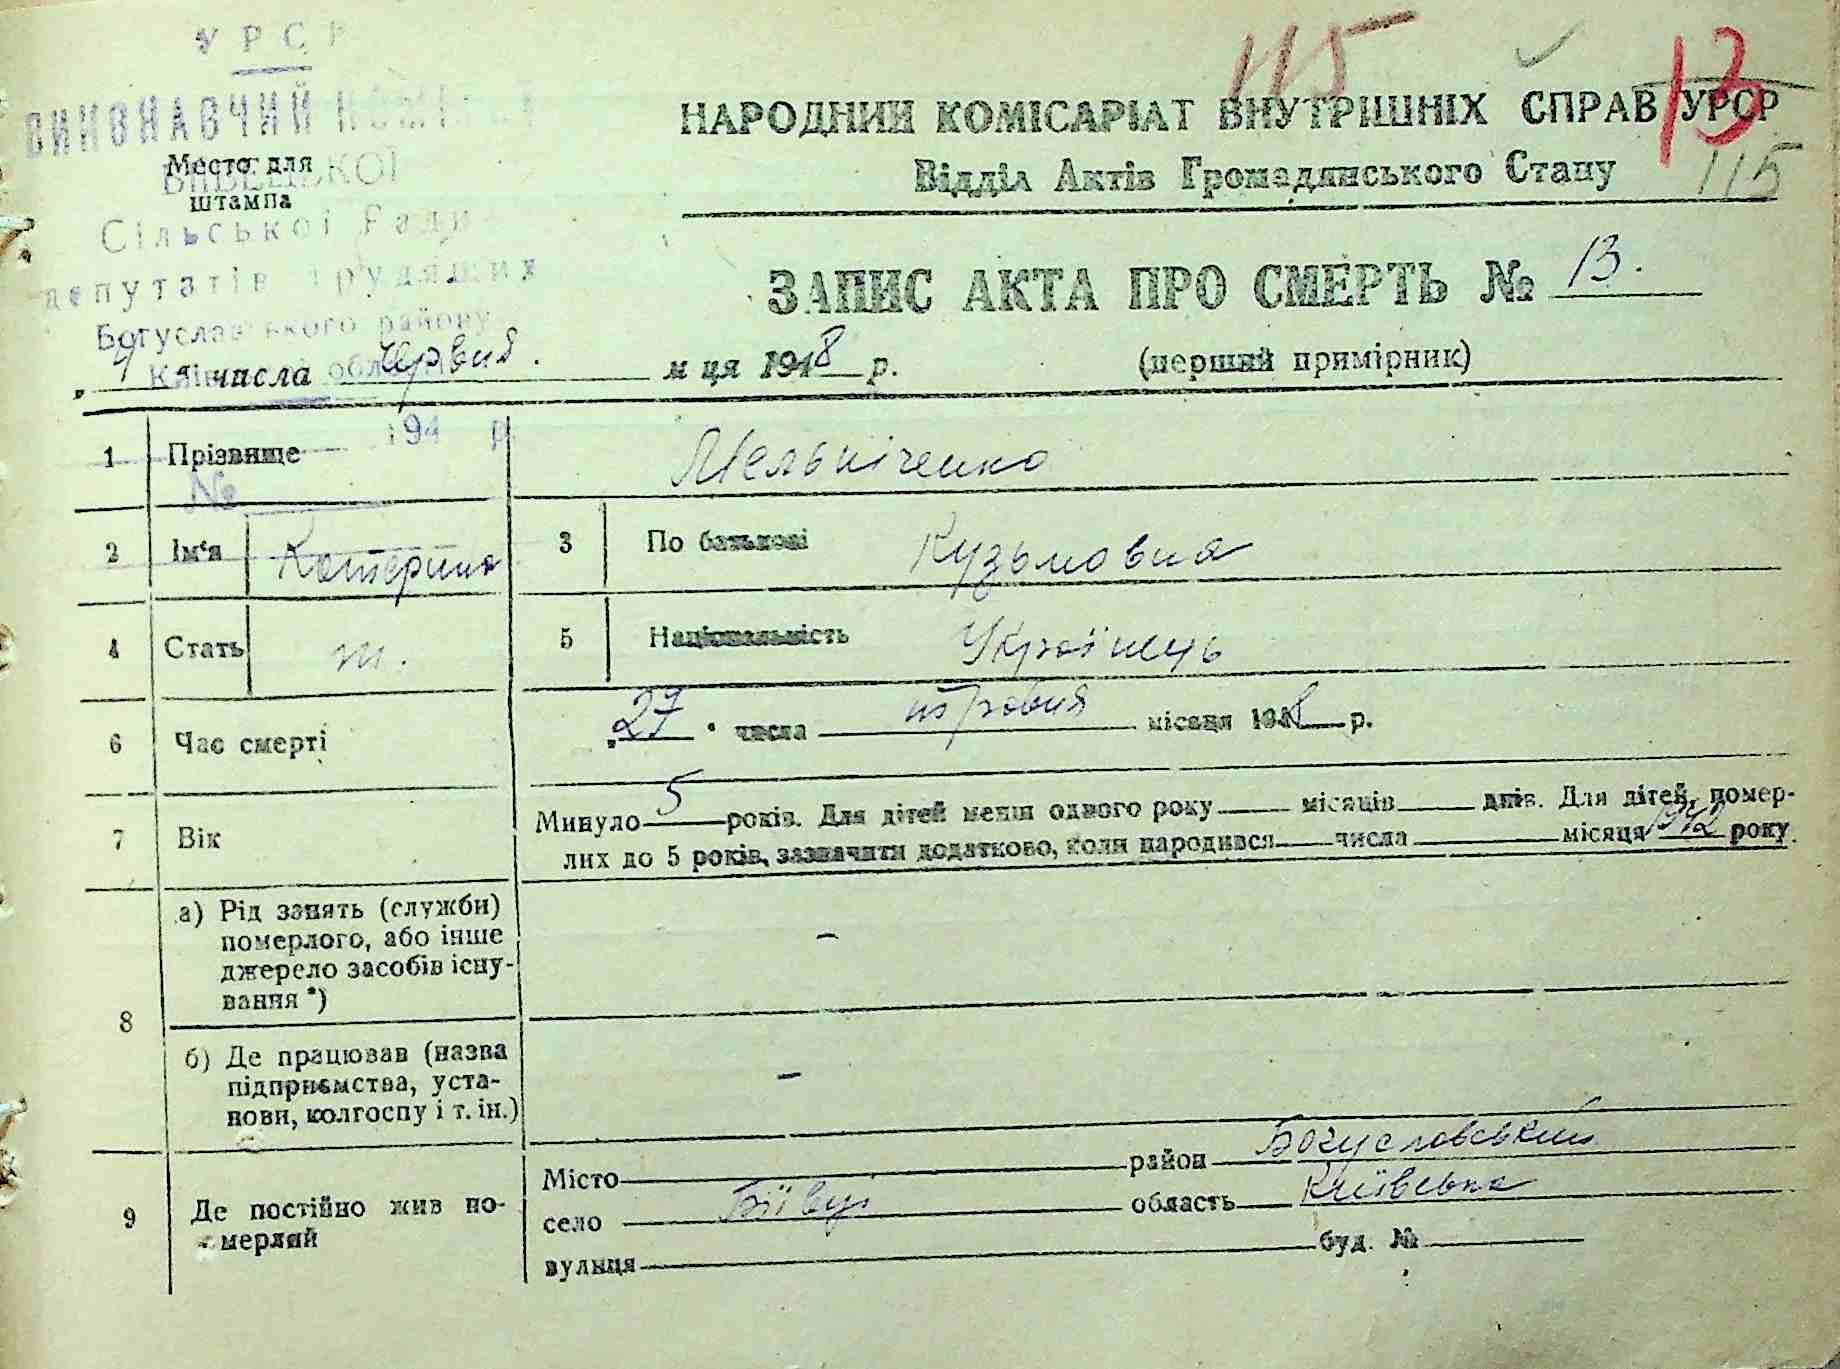 УРСР
ВИКОНАВЧИЙ КОМІТЕТ
Место для
штампа
Сільської Ради
депутатів трудящих
Богуславського району
області
194 р.
№
115
13
115
НАРОДНИЙ КОМІСАРІАТ ВНУТРІШНІХ СПРАВ УРСР
Відділ Актів Громадянського Стану
ЗАПИС АКТА ПРО СМЕРТЬ № 13.
(перший примірник)
„ 1 “ числа червня. м ця 1948 р.
1 Прізвище Мельніченко
2 Ім‘я Катерина 3 По батькові Кузьмовна
4 Стать ж. 5 Національність Українець
6 Час смерті „27“ числа травня місяця 1948 р.
7 Вік Минуло 5 років. Для дітей менш одного року місяців днів. Для дітей, помер-
лих до 5 років, зазначити додатково, коли народився числа місяця 1942 року.
8 а) Рід занять (служби)
померлого, або інше
джерело засобів існу-
вання *) –
б) Де працював (назва
підприємства, уста-
нови, колгоспу і т. ін.) –
9 Де постійно жив по-
мерлий
Місто район Богуславський
село Біївці область Київська
вулиця буд. №